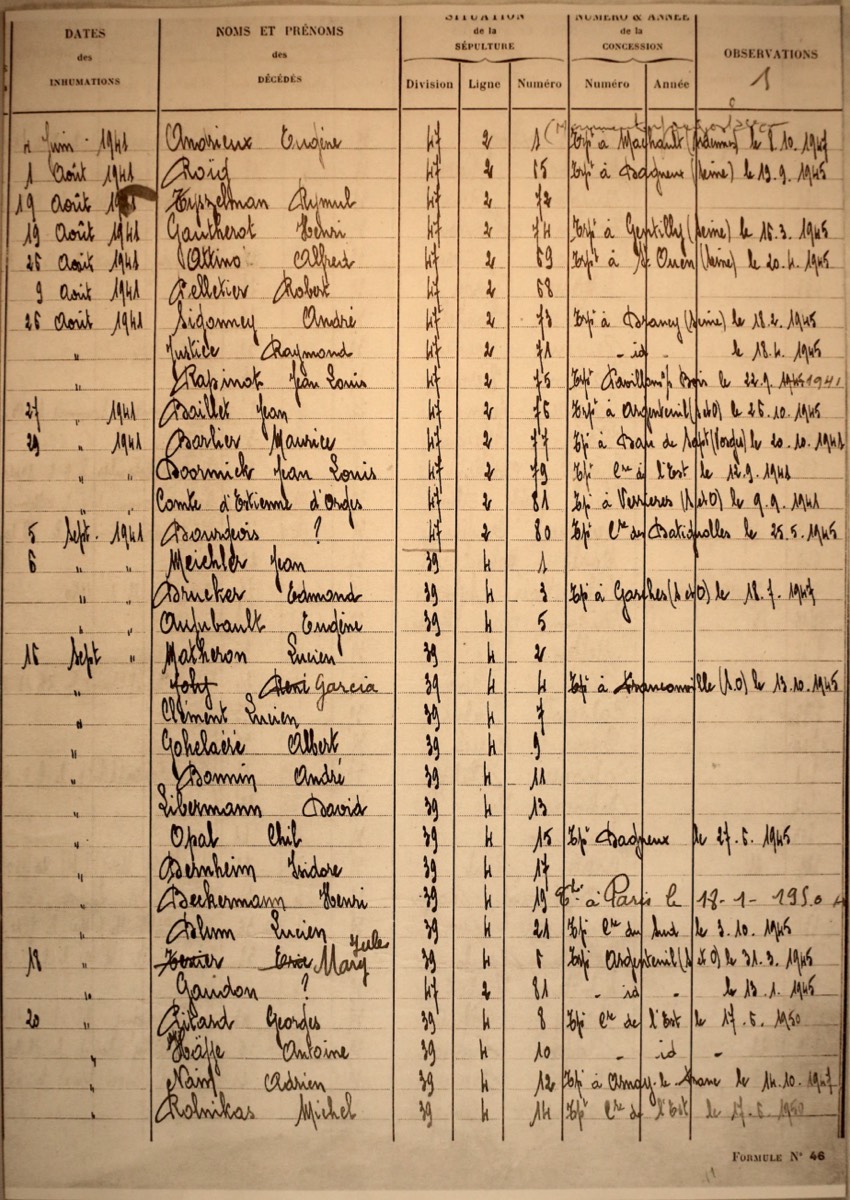 DATES des INHUMATIONS | NOMS ET PRÉNOMS des DÉCÉDÉS | SITUATION de la SÉPULTURE | NUMÉRO & ANNÉE de la CONCESSION | OBSERVATIONS
Division Ligne Numéro Numéro Année 1
Juin 1941 Andrieux Eugène 47 2 1 Tpé à Machault (Ardennes) le 8.10.1947
1 Août 1941 Roïd 47 2 65 Tpé à Bagneux (Seine) le 19.9.1945
19 Août 1941 Tyszelman Rymul 47 2 72
19 Août 1941 Gautherot Henri 47 2 74 Tpé à Gentilly (Seine) le 16.3.1945
26 Août 1941 Ottino Alfred 47 2 69 Tpé à St Ouen (Seine) le 20.4.1945
9 Août 1941 Pelletier Robert 47 2 68
26 Août 1941 Sigonney André 47 2 73 Tpé à Drancy (Seine) le 18.2.1945
" Justice Raymond 47 2 71 - id - le 18.4.1945
" Rapinat Jean Louis 47 2 75 Tpé Pavillons s/s Bois le 22.9.1941
27 " 1941 Baillet Jean 47 2 76 Tpé à Argenteuil (S et O) le 26.10.1945
29 " 1941 Barlier Maurice 47 2 77 Tpé à Ban de Sapt (Vosges) le 20.10.1941
" " Doornick Jean Louis 47 2 79 Tpé Cre de l'Est le 12.9.1941
" " Comte d'Estienne d'Orges 47 2 81 Tpé à Verrières (S et O) le 9.9.1941
5 Sept. 1941 Bourgeois ? 47 2 80 Tpé Cre des Batignolles le 25.5.1945
6 " " Meichler Jean 39 4 1
" " Brucker Edmond 39 4 3 Tpé à Garches (S et O) le 18.7.1947
" " Aufubault Eugène 39 4 5
16 Sept " Matheron Lucien 39 4 2
" Joly René Garcia 39 4 4 Tpé à Franconville (S.O) le 13.10.1945
" Clément Lucien 39 4 7
" Gohelaéré Albert 39 4 9
" Bonnin André 39 4 11
" Libermann David 39 4 13
" Opal Chil 39 4 15 Tpé Bagneux le 27.6.1945
" Bernheim Isidore 39 4 17
" Beckermann Henri 39 4 19 à Paris le 18-1-1950
" Blum Lucien 39 4 21 Tpé Cre du Sud le 3.10.1945
18 " Mary Jules 39 4 6 Tpé Argenteuil (S et O) le 31.3.1945
" Gaudon ? 47 2 81 - id - le 13.1.1945
20 " Pitard Georges 39 4 8 Tpé Cre de l'Est le 17.6.1950
" Häffe Antoine 39 4 10 - id -
" Nain Adrien 39 4 12 Tpé à le 14.10.1947
" Rolnikas Michel 39 4 14 Tpé Cre de l'Est le 17.6.1950
FORMULE N° 46